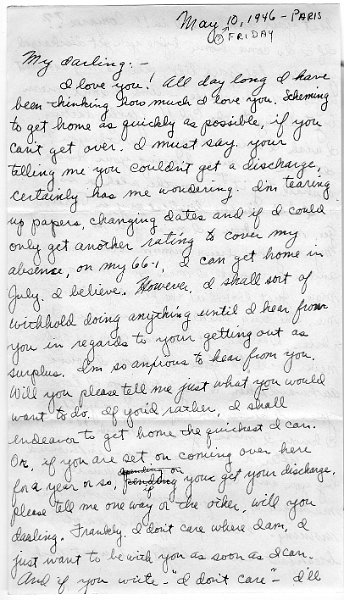 May 10, 1946 - PARIS
① FRIDAY
My darling: -
I love you! All day long I have
been thinking how much I love you. Scheming
to get home as quickly as possible, if you
can't get over. I must say your
telling me you couldn't get a discharge,
certainly has me wondering. I'm tearing
up papers, changing dates and if I could
only get another rating to cover my
absense, on my 66-1, I can get home in
July. I believe. However, I shall sort of
withhold doing anything until I hear from
you in regards to your getting out as
surplus. I'm so anxious to hear from you.
Will you please tell me just what you would
want to do. If you'd rather, I shall
endeavor to get home the quickest I can.
Or, if you are set on coming over here
for a year or so, depending on your get your discharge,
please tell me one way or the other, will you
darling. Frankly I don't care where I am, I
just want to be with you as soon as I can.
And if you write - "I don't care" - I'll